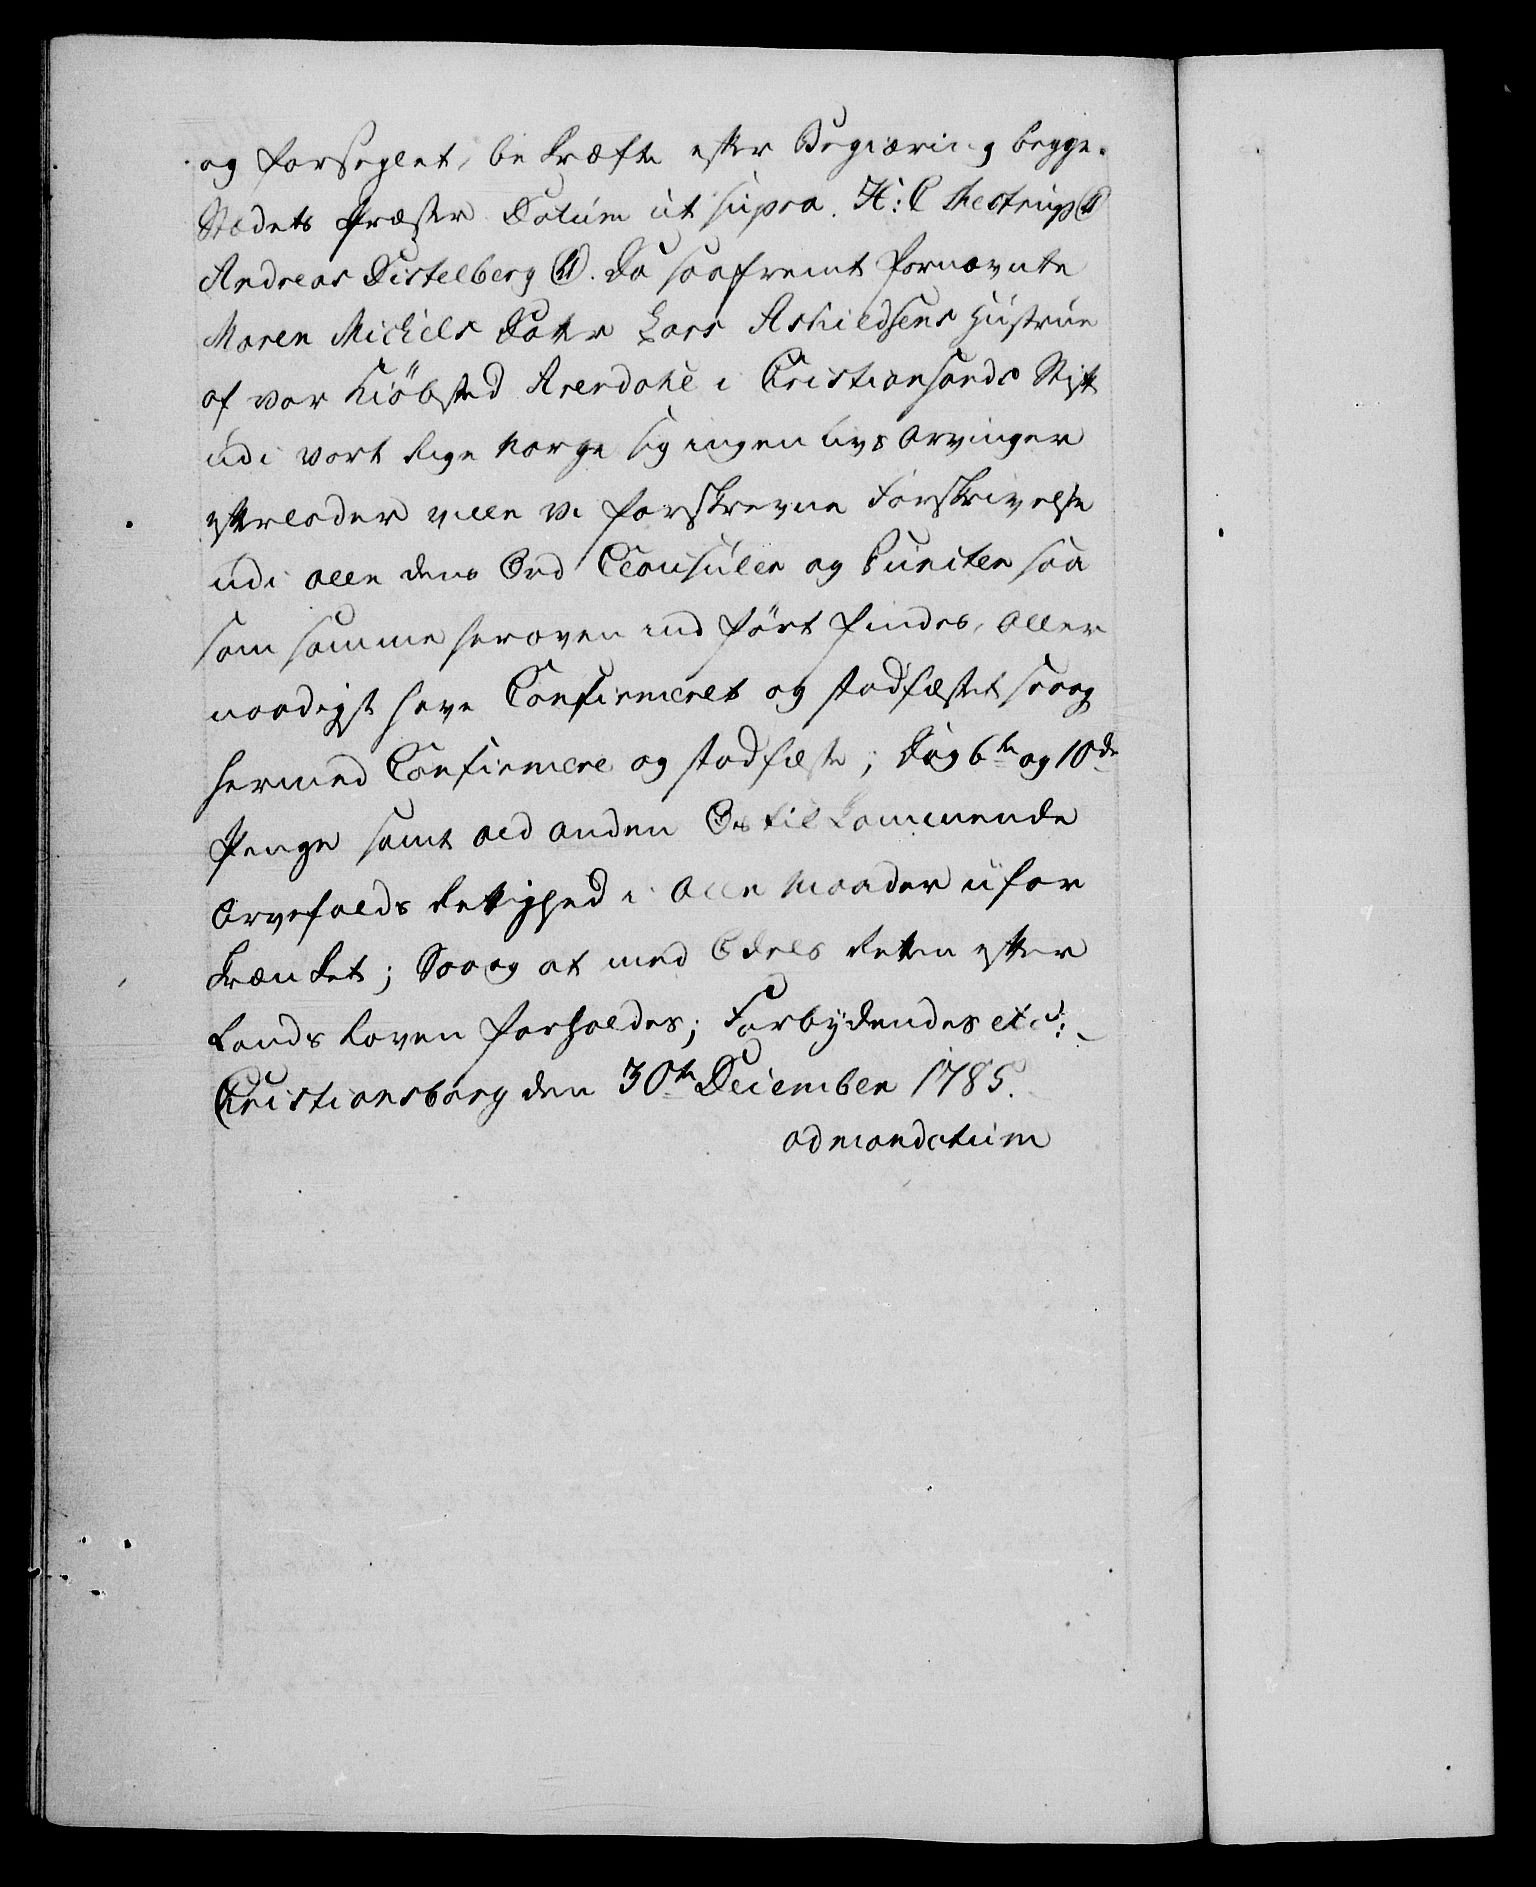 og forseglet, be kræfte efter Begiæring begge
Stædets Præster Datum ut supra. H: C Thestrup
Andreas Distelberg. Da saafremt fornævnte
Maren Michels Datter Lars Askildsens Hustrue
af vor Kiöbsted Arendahl i Christiansands Stift
udi vort Rige Norge sig ingen livs Arvinger
efterlader ville vi forskrevne Forskrivelse
udi alle dens Ord Clausuler og Puncter saa
som samme her oven ind fört findes, Aller
naadigst have Confirmeret og stadfæstet saa og
hermed Confirmere og stadfæste; Dog 6te og 10de
Penge samt ald anden Os tilkommende
Arvefalds Rettighed i Alle Maader ufor
krænket; Saa og at med Odels Retten efter
Lands Loven forholdes; Forbydendes etc:
Christiansborg den 30te December 1785.
ad mandatum